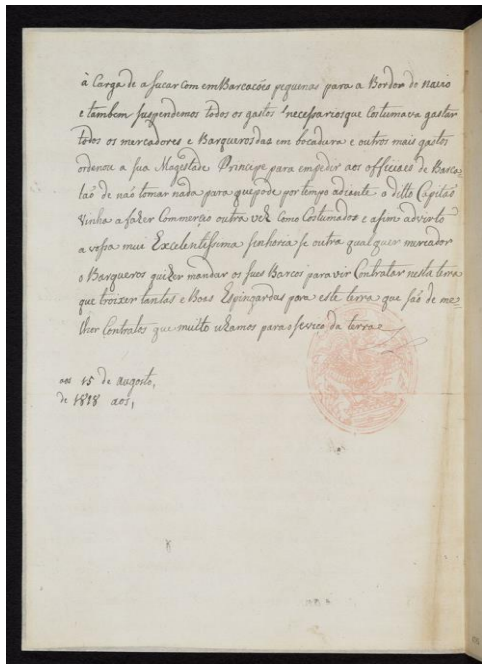 à Carga de asucar com emBarcacóes pequenas para a Bordor do navio
e tambem suspendemos todos os gastos necessarios que Costumava gastar
todos os mercadores e Barqueros das em bocadura e outros mais gastos
ordenou a sua Magestade Principe para empedir aos officiaes de Bancа=
laõ de não tomar nada para que pode por tempo adiante o ditto Capitaõ
vinha a fazer Commerço outra vez como Costumados e asim advirto
a vossa mui Excelentissima senhoria se outra qualquer mercador
o Barqueros quizer mandar os sues Barcos para vir Contratar nesta terra
que troixer tantas e Boas Espingardas para este terra que saõ de me=
lhor Contratos que muito uzamos para o seviço da terra
aos 15 de Augosto,
de 1818 aos,